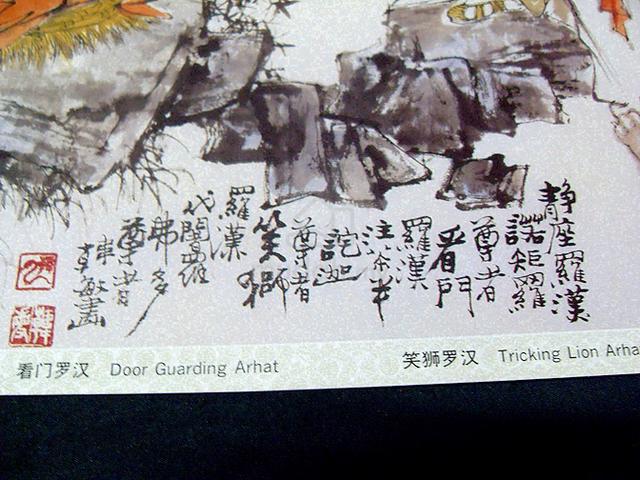 静座羅漢
諾矩羅
尊者
看門
羅漢
注荼半
詫迦
尊者
笑獅
羅漢
伐闍羅
弗多
尊者
敏畫
看门罗汉 Door Guarding Arhat
笑狮罗汉 Tricking Lion Arha